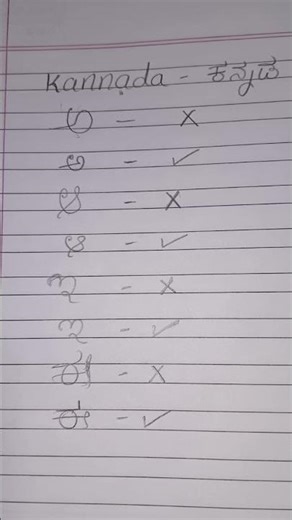 Kannada - ಕನ್ನಡ
ಅ - ×
ಅ - ✓
ಆ - ×
ಆ - ✓
ಇ - ×
ಇ - ✓
ಈ - ×
ಈ - ✓